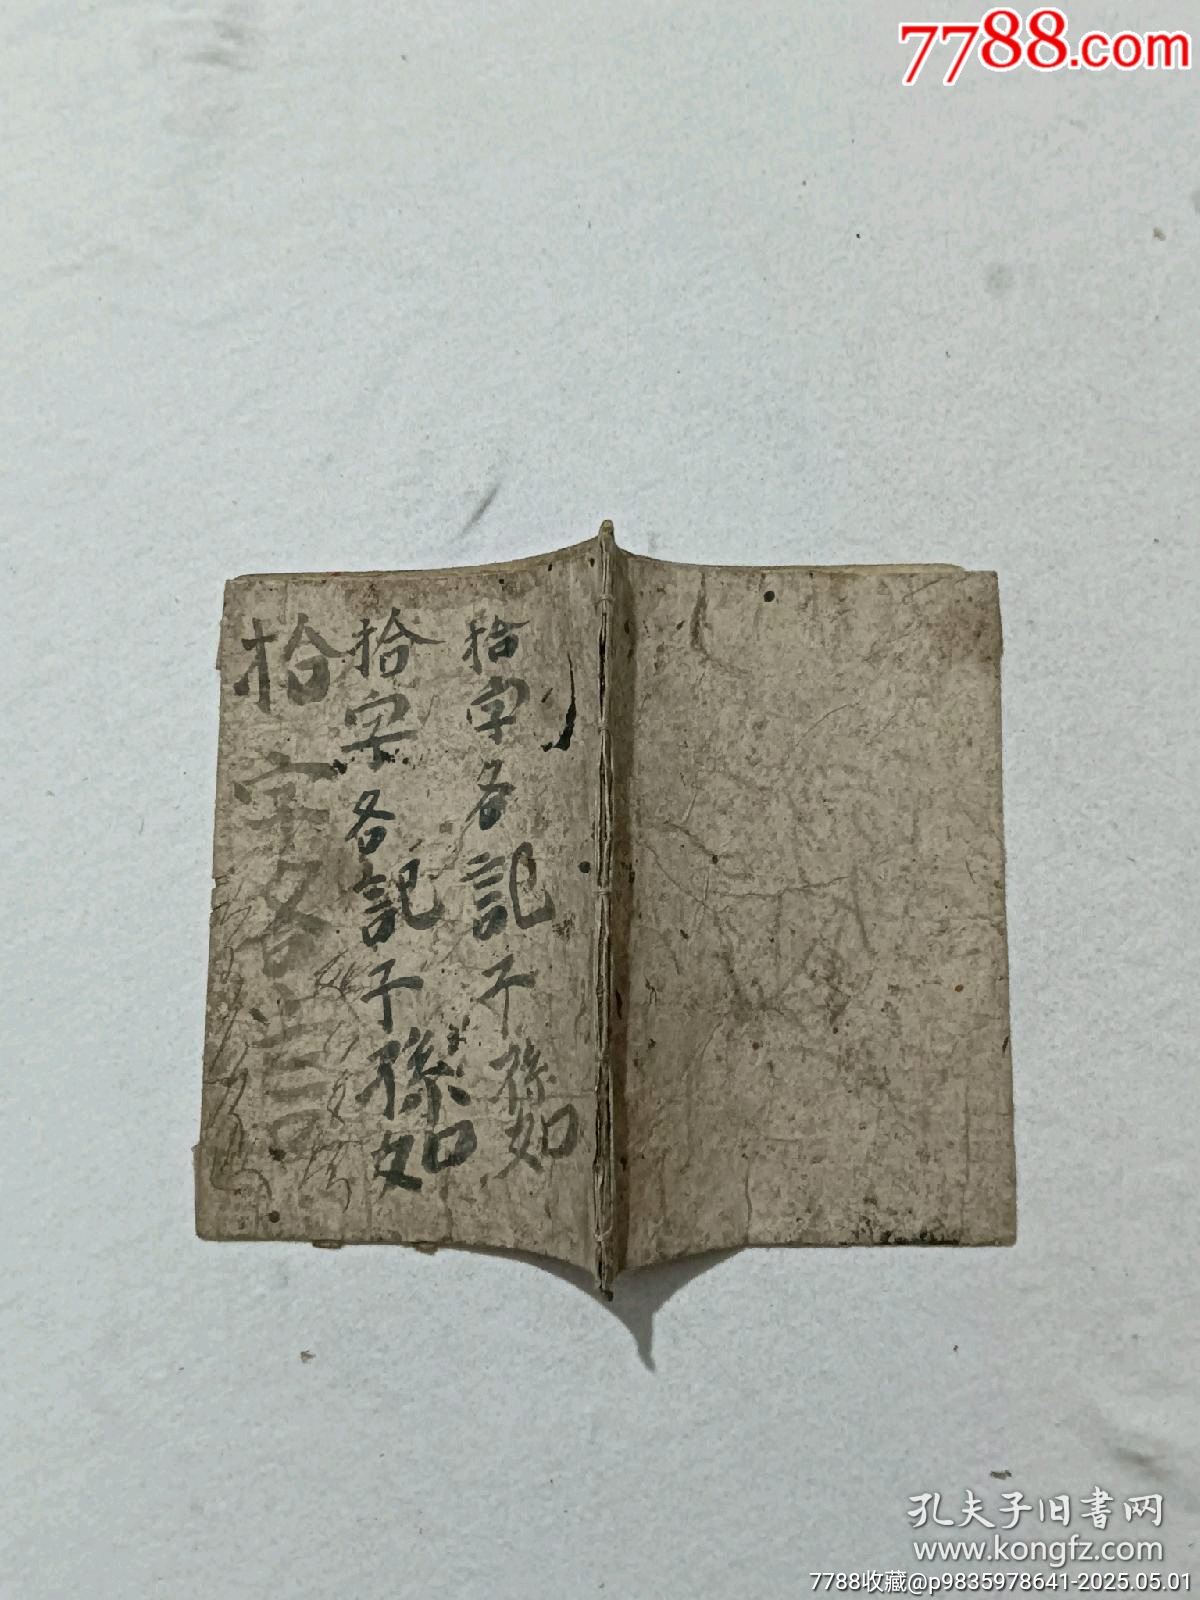 7788.com
拾字各記子孫如
拾字各記子孫如
拾字各言
孔夫子旧書网
www.kongfz.com
7788收藏@p9835978641-2025.05.01